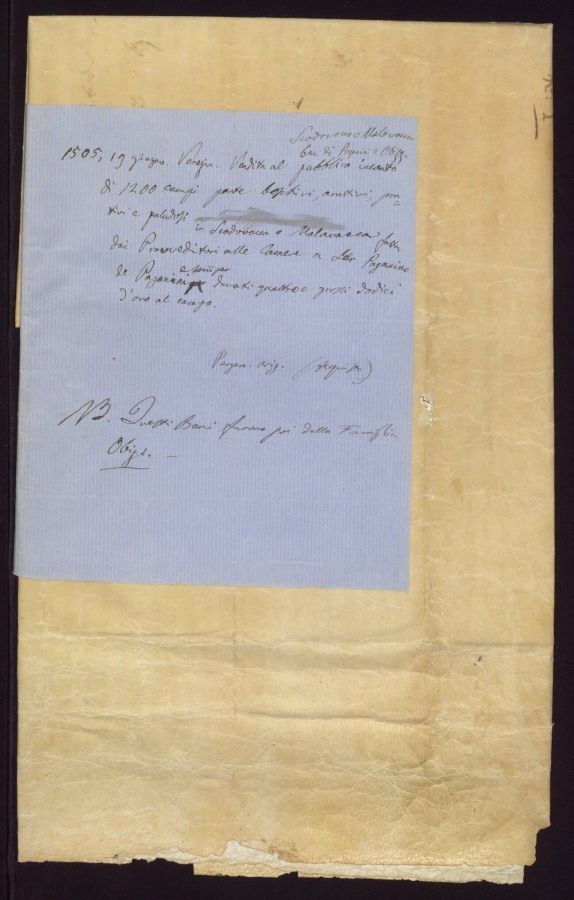 Scodovacca e Malavacca
beni di Paganini e Obizi.
1505, 19 giugno. Venezia. Vendita al pubblico incanto
di 1200 campi parte boschivi, arativi, pra
tivi e paludosi
in Scodovacca e Malavacca fatta
dai Provveditori alle Camere a Ser Paganino
de Paganini
e soci per
ducati quattro e grossi dodici
d'oro al campo.
Pergam. orig. (Acquisto)
NB. Questi Beni furono poi della Famiglia
Obizi. -